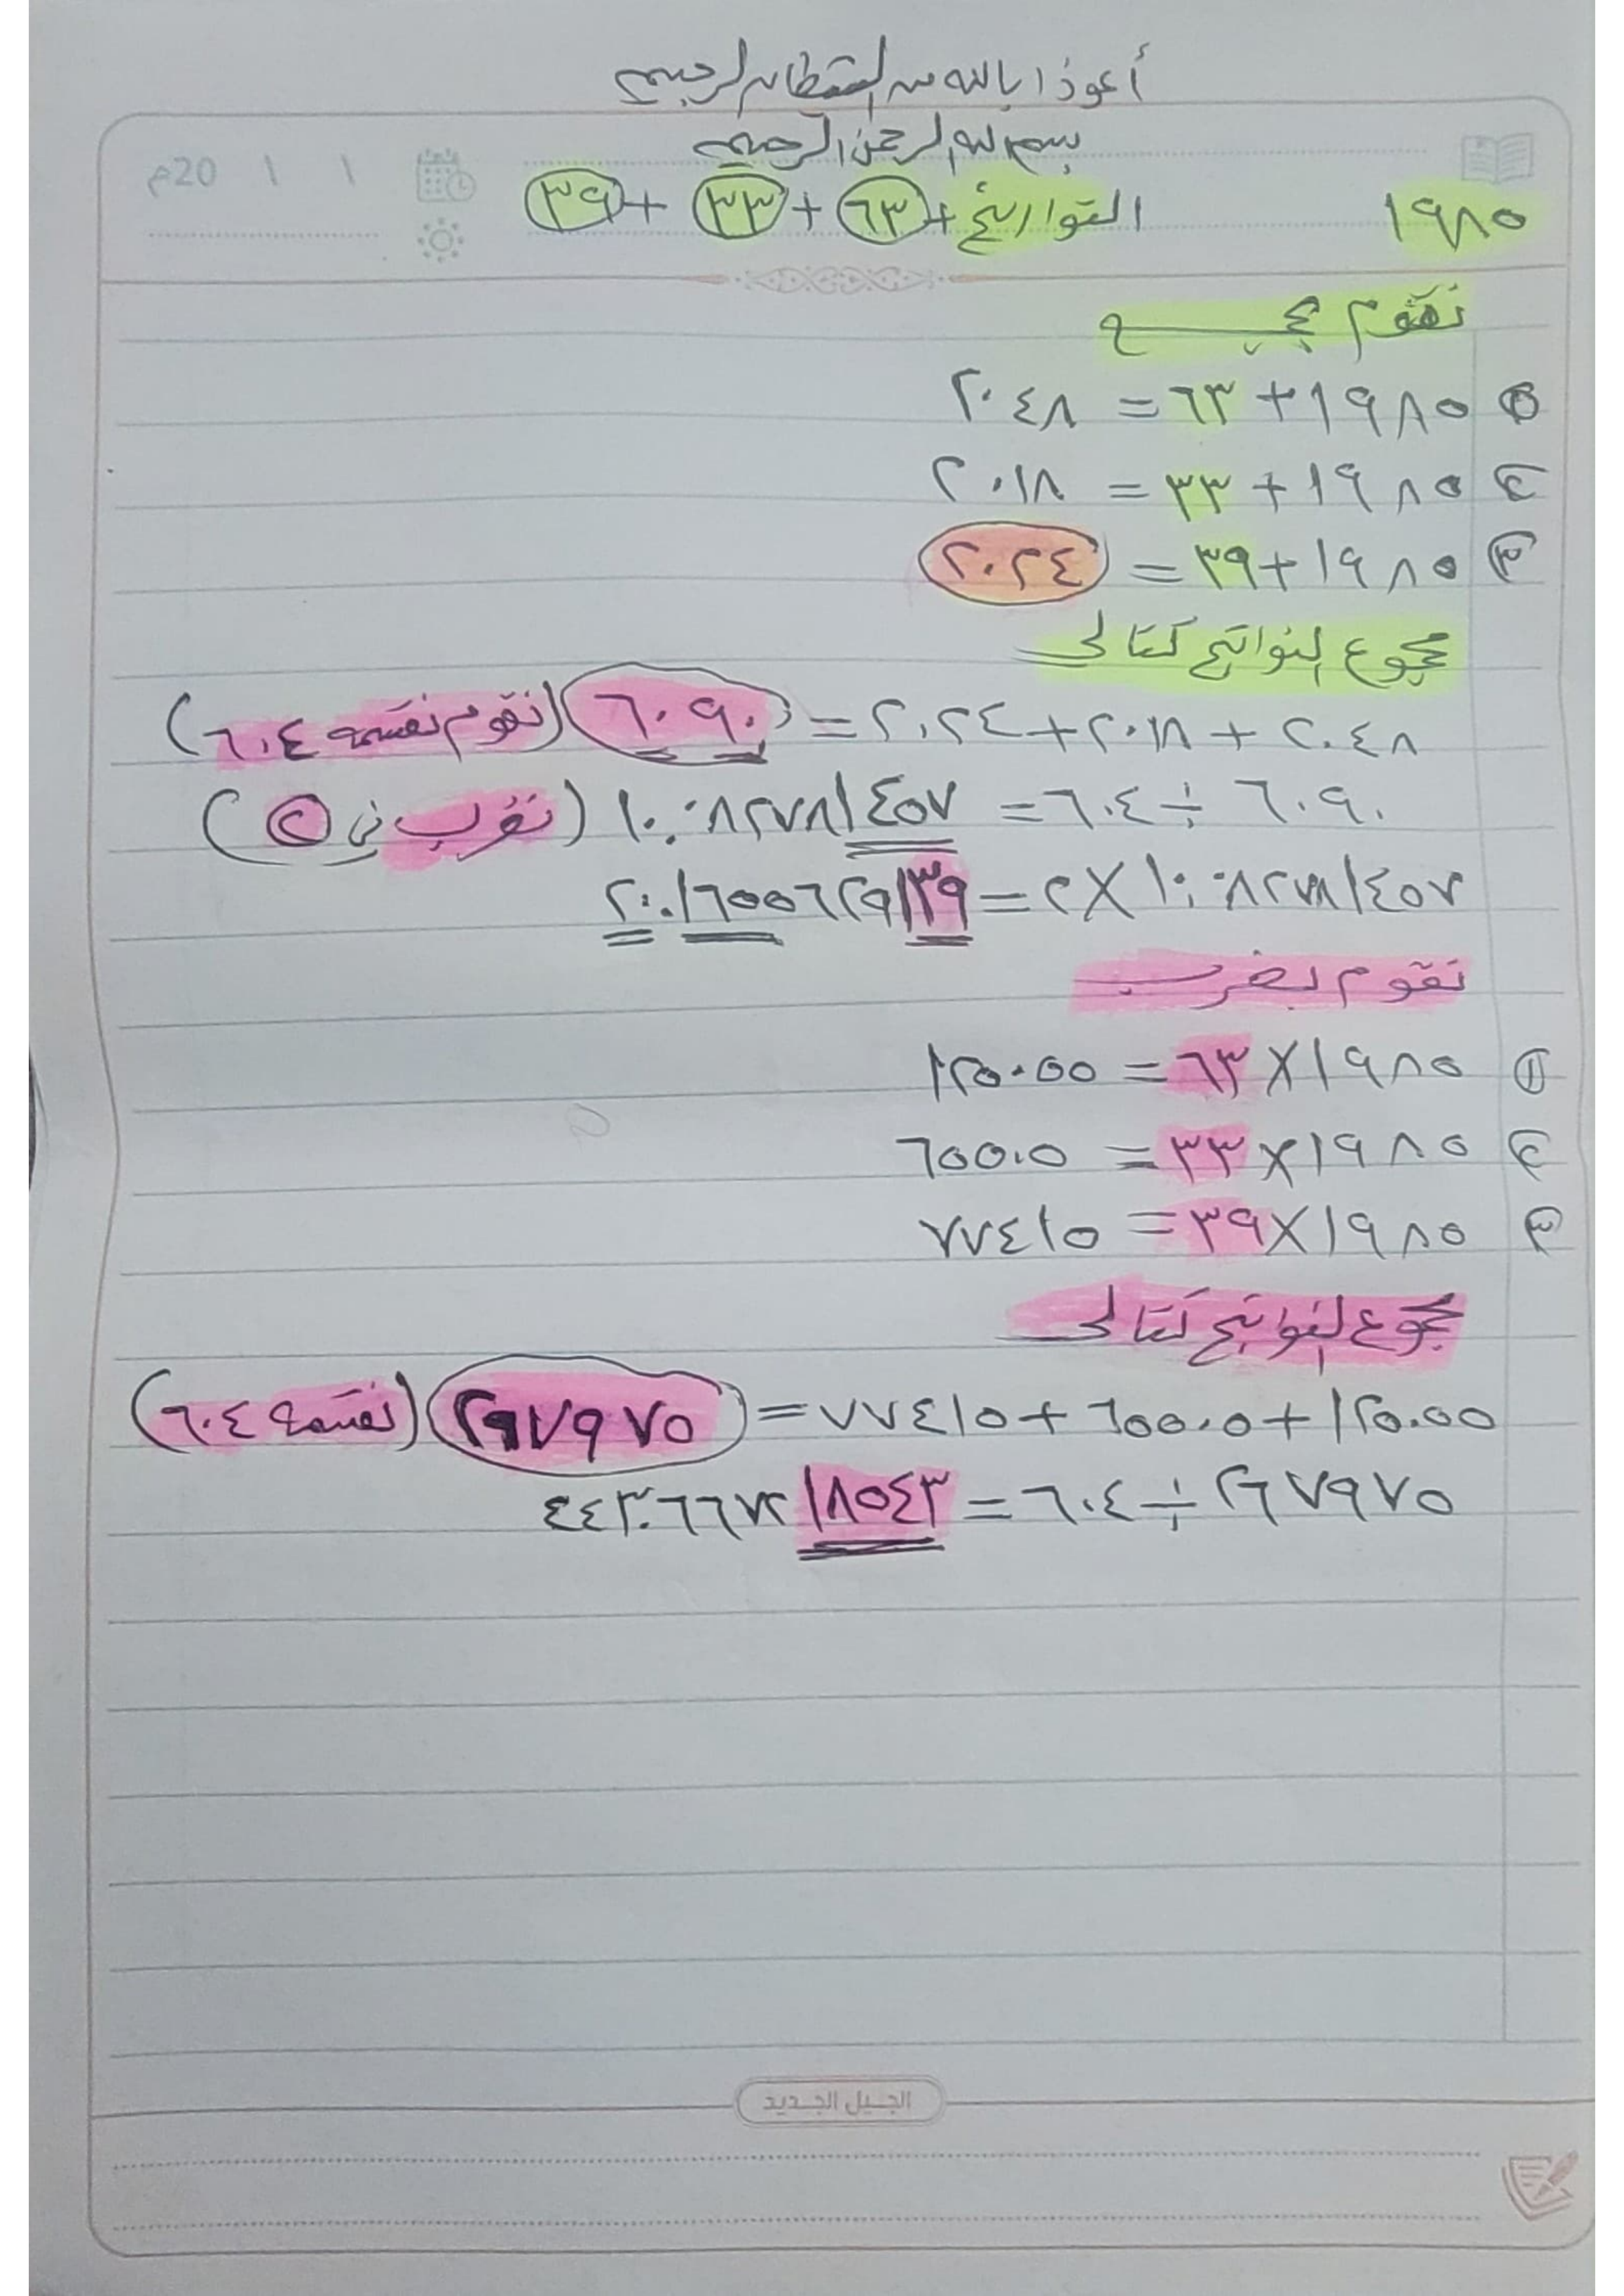 أعوذ ا بالله من الشيطان الرجيم
بسم الله الرحمن الرحيم
20م / /
١٩٨٥ التواريخ + ٦٣ + ٣٣ + ٣٩
نقوم بجمع
① ١٩٨٥ + ٦٣ = ٢٠٤٨
② ١٩٨٥ + ٣٣ = ٢٠١٨
③ ١٩٨٥ + ٣٩ = ٢٠٢٤
مجموع النواتج كتالي
٢٠٤٨ + ٢٠١٨ + ٢٠٢٤ = ٦٠٩٠ (نقوم نقسمه ٦٠٤)
٦٠٩٠ ÷ ٦٠٤ = ١٠.٠٨٢٧٨١٤٥٧ (نضرب في ٢)
١٠.٠٨٢٧٨١٤٥٧ × ٢ = ٢٠.١٦٥٥٦٢٩١٣٩
نقوم بضرب
① ١٩٨٥ × ٦٣ = ١٢٥٠٥٥
② ١٩٨٥ × ٣٣ = ٦٥٥٠٥
③ ١٩٨٥ × ٣٩ = ٧٧٤١٥
مجموع النواتج كتالي
١٢٥٠٥٥ + ٦٥٥٠٥ + ٧٧٤١٥ = ٢٦٧٩٧٥ (نقسمه ٦٠٤)
٢٦٧٩٧٥ ÷ ٦٠٤ = ٤٤٣.٦٦٧٢١٨٥٤٣
الجيل الجديد